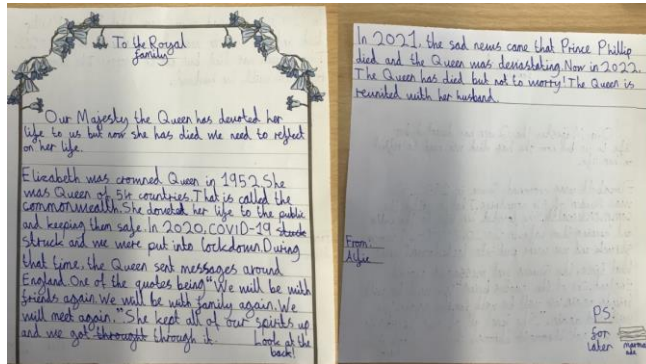 To the Royal
family
Our Majesty the Queen has devoted her
life to us but now she has died we need to reflect
on her life.
Elizabeth was crowned Queen in 1952. She
was Queen of 54 countries. That is called the
commonwealth. She devoted her life to the public
and keeping them safe. In 2020, COVID-19
struck and we were put into lockdown. During
that time, the Queen sent messages around
England. One of the quotes being "We will be with
friends again. We will be with family again. We
will meet again." She kept all of our spirits up
and we got through it. Look at the
back!
In 2021, the sad news came that Prince Phillip
died and the Queen was devastating. Now in 2022,
The Queen has died but not to worry! The Queen is
reunited with her husband.
From:
Alfie
PS:
for
later
marmalade